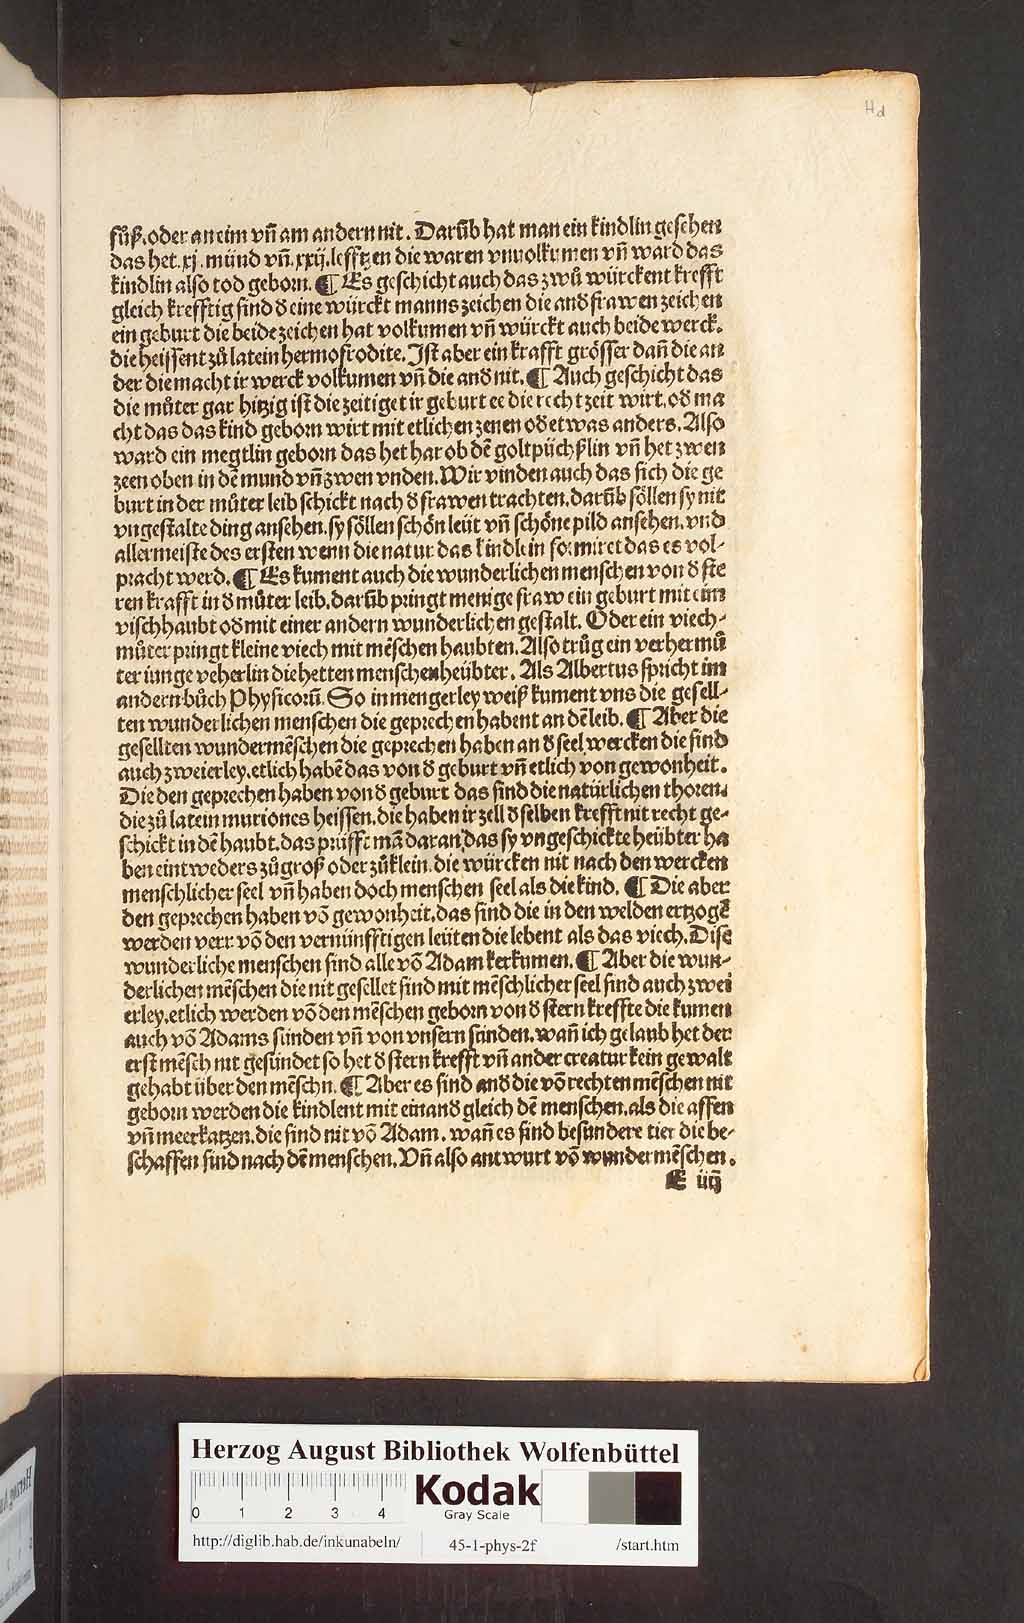 Hd
fůß.oder an eim vñ am andern nit. Darũb hat man ein kindlin gesehen
das het.xj.münd vñ.xxij.lefftzen die waren vnuolkumen vñ ward das
kindlin also tod geborn. ¶ Es geschicht auch das zwů würckent krefft
gleich krefftig sind ð eine würckt manns zeichen die anð frawen zeichen
ein geburt die beide zeichen hat volkumen vñ würckt auch beide werck.
die heissent zů latein hermofrodite. Ist aber ein krafft grösser dañ die an
der die macht ir werck volkumen vñ die anð nit. ¶ Auch geschicht das
die můter gar hitzig ist die zeitiget ir geburt ee die recht zeit wirt. oð ma
cht das das kind geborn wirt mit etlichen zenen oð etwas anders. Also
ward ein megtlin geborn das het har ob dẽ goltpüchßlin vñ het zwen
zeen oben in dẽ mund vñ zwen vnden. Wir vinden auch das sich die ge
burt in der můter leib schickt nach ð frawen trachten. darũb söllen sy nit
vngestalte ding ansehen. sy söllen schön leüt vñ schöne pild ansehen. vnd
allermeiste des ersten wenn die natur das kindlein formiret das es vol-
pracht werd. ¶ Es kument auch die wunderlichen menschen von ð ste
ren krafft in ð můter leib. darũb pringt menige fraw ein geburt mit eim
visch haubt oð mit einer andern wunderlichen gestalt. Oder ein viech-
můter pringt kleine viech mit mẽschen haubten. Also trůg ein verher mů
ter iunge veherlin die hetten menschen heübter. Als Albertus spricht im
andern bůch Phÿsicorũ. So in mengerley weiß kument vns die gesell-
ten wunderlichen menschen die geprechen habent an dẽ leib. ¶ Aber die
gesellten wundermẽschen die geprechen haben an ð seel wercken die sind
auch zweierley. etlich habẽ das von ð geburt vñ etlich von gewonheit.
Die den geprechen haben von ð geburt das sind die natürlichen thoren.
die zů latein muriones heissen. die haben ir zell ð selben krefft nit recht ge-
schickt in dẽ haubt. das prüfft mã daran das sy vngeschickte heübter ha
ben eintweders zů groß oder zů klein. die würcken nit nach den wercken
menschlicher seel vñ haben doch menschen seel als die kind. ¶ Die aber
den geprechen haben võ gewonheit. das sind die in den welden ertzogẽ
werden verr võ den vernünfftigen leüten die lebent als das viech. Dise
wunderliche menschen sind alle võ Adam kerkumen. ¶ Aber die wun-
derlichen mẽschen die nit gesellet sind mit mẽschlicher seel sind auch zwei
erley. etlich werden võ den mẽschen geborn von ð stern kreffte die kumen
auch võ Adams sünden vñ von vnsern sünden. wañ ich gelaub het der
erst mẽsch nit gesündet so het ð stern krefft vñ ander creatur kein gewalt
gehabt über den mẽschn. ¶ Aber es sind anð die võ rechten mẽschen nit
geborn werden die kindlent mit einanð gleich dẽ menschen. als die affen
vñ meerkatzen. die sind nit võ Adam. wañ es sind besundere tier die be-
schaffen sind nach dẽ menschen. Vñ also antwurt võ wundermẽschen.
E iiij
Herzog August Bibliothek Wolfenbüttel
0 1 2 3 4
Kodak
Gray Scale
http://diglib.hab.de/inkunabeln/ 45-1-phys-2f /start.htm